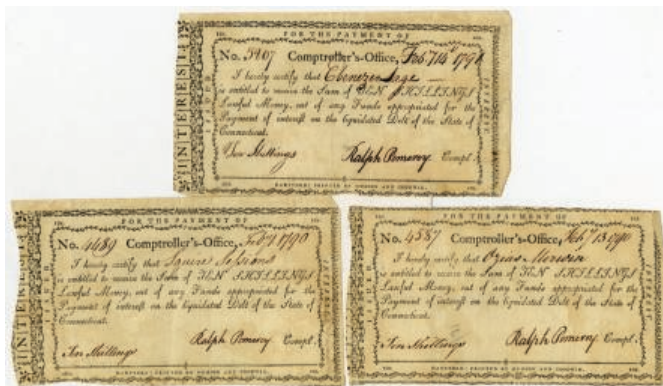 FOR THE PAYMENT OF
INTEREST
No. 5207 Comptroller's-Office, 1790
I hereby certify that Ebenezer Sage
is entitled to receive the Sum of TEN SHILLINGS
Lawful Money, out of any Funds appropriated for the
Payment of interest on the liquidated Debt of the State of
Connecticut.
Ten Shillings Ralph Pomeroy Compt.
HARTFORD: PRINTED BY HUDSON AND GOODWIN.
FOR THE PAYMENT OF
INTEREST
No. 4689 Comptroller's-Office, 1790
I hereby certify that Squire Sessions
is entitled to receive the Sum of TEN SHILLINGS
Lawful Money, out of any Funds appropriated for the
Payment of interest on the liquidated Debt of the State of
Connecticut.
Ralph Pomeroy Compt.
Ten Shillings
HARTFORD: PRINTED BY HUDSON AND GOODWIN.
FOR THE PAYMENT OF
No. 4587 Comptroller's-Office,
I hereby certify that Ozias
is entitled to receive the Sum of TEN SHILLINGS
Lawful Money, out of any Funds appropriated for the
Payment of interest on the liquidated Debt of the State of
Connecticut.
Ten Shillings Ralph Pomeroy Compt.
HARTFORD: PRINTED BY HUDSON AND GOODWIN.